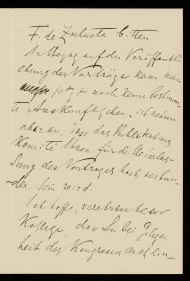 F. de Zulueta bitten.
In Bezug auf die Veröffentli
chung der Vorträge kann man
jetzt noch keine bestimm
te Auskunft geben, ich nehme
aber an, dass das Publikations
Komité Ihnen für die Überlas
sung des Vortrages sehr verbun
den sein wird.
Ich hoffe, verehrter Herr
Kollege, dass Sie bei Gelegen
heit des Kongresses